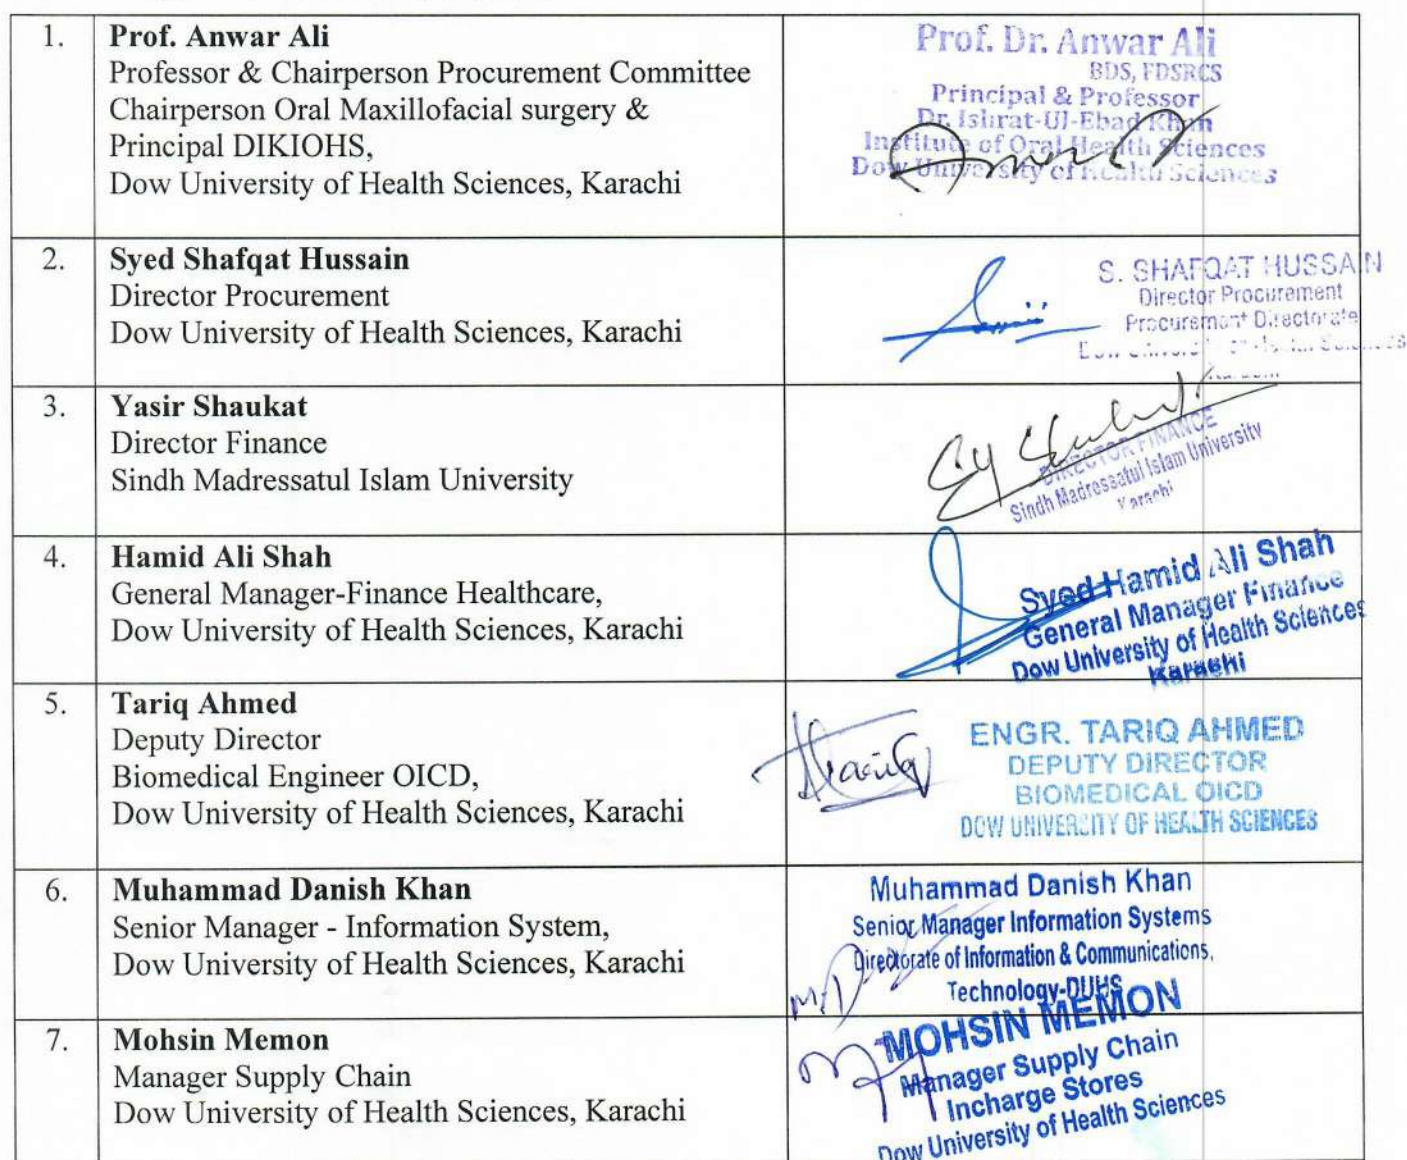 1.
Prof. Anwar Ali
Professor & Chairperson Procurement Committee
Chairperson Oral Maxillofacial surgery &
Principal DIKIOHS,
Dow University of Health Sciences, Karachi
Prof. Dr. Anwar Ali
BDS, FDSRCS
Principal & Professor
Dr. Ishrat-Ul-Ebad Khan
Institute of Oral Health Sciences
Dow University of Health Sciences
2.
Syed Shafqat Hussain
Director Procurement
Dow University of Health Sciences, Karachi
S. SHAFQAT HUSSAIN
Director Procurement
Procurement Directorate
3.
Yasir Shaukat
Director Finance
Sindh Madressatul Islam University
DIRECTOR FINANCE
Sindh Madressatul Islam University
Karachi
4.
Hamid Ali Shah
General Manager-Finance Healthcare,
Dow University of Health Sciences, Karachi
Syed Hamid Ali Shah
General Manager Finance
Dow University of Health Sciences
Karachi
5.
Tariq Ahmed
Deputy Director
Biomedical Engineer OICD,
Dow University of Health Sciences, Karachi
ENGR. TARIQ AHMED
DEPUTY DIRECTOR
BIOMEDICAL OICD
DOW UNIVERSITY OF HEALTH SCIENCES
6.
Muhammad Danish Khan
Senior Manager - Information System,
Dow University of Health Sciences, Karachi
Muhammad Danish Khan
Senior Manager Information Systems
Directorate of Information & Communications,
Technology-DUHS
7.
Mohsin Memon
Manager Supply Chain
Dow University of Health Sciences, Karachi
MOHSIN MEMON
Manager Supply Chain
Incharge Stores
Dow University of Health Sciences